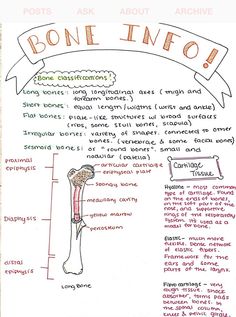 POSTS ASK ABOUT ARCHIVE
BONE INFO!
Bone classifications:
Long bones: long, longitudinal axes (thigh and
forearm bones)
Short bones: equal length/widths (wrist and ankle)
Flat bones: plate-like structures w/ broad surfaces
(ribs, some skull bones, scapula)
Irregular bones: variety of shapes. connected to other
bones. (vertebrae & some facial bones)
Sesmoid bones: or "round bones". small and
nodular (patella)
proximal
epiphysis
Diaphysis
distal
epiphysis
articular cartilage
epiphyseal plate
spongy bone
medullary cavity
yellow marrow
periosteum
Long Bone
Cartilage
Tissues:
Hyaline - most common
type of cartilage. Found
on the ends of bones,
on the soft part of the
nose, and supportive
rings of the respiratory
system. It's used as a
model for bone.
Elastic - much more
flexible. Dense network
of elastic fibers.
Framework for the
ears and some
parts of the larynx.
Fibrocartilage - very
tough tissue. Shock
absorber, forms pads
between bones. In
the spinal column,
knees & pelvic girdle.